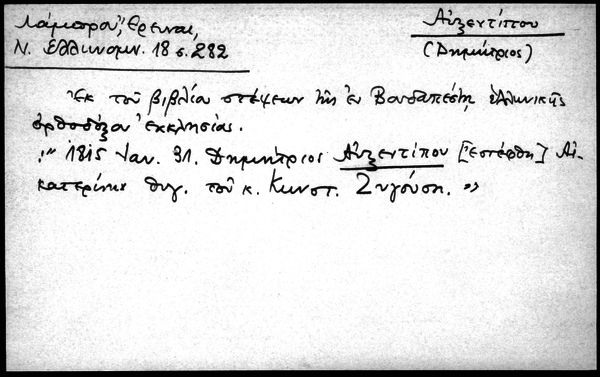 Λάμπρου, Ἔρευναι,
Ν. Ἑλληνομν. 18 σ. 282
Αὐξεντίπου
(Δημήτριος)
Ἐκ τοῦ βιβλίου στέψεων τῆς ἐν Βουδαπέστῃ ἑλληνικῆς
ὀρθοδόξου ἐκκλησίας.
„ 1815 Ἰαν. 31. Δημήτριος Αὐξεντίπου [ἐστέφθη] Αἰ-
κατερίνην θυγ. τοῦ κ. Κωνστ. Ζυγούση. »